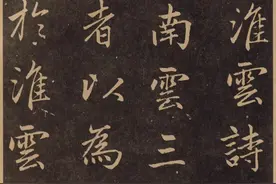 淮雲詩
南雲三
者以為
於淮雲